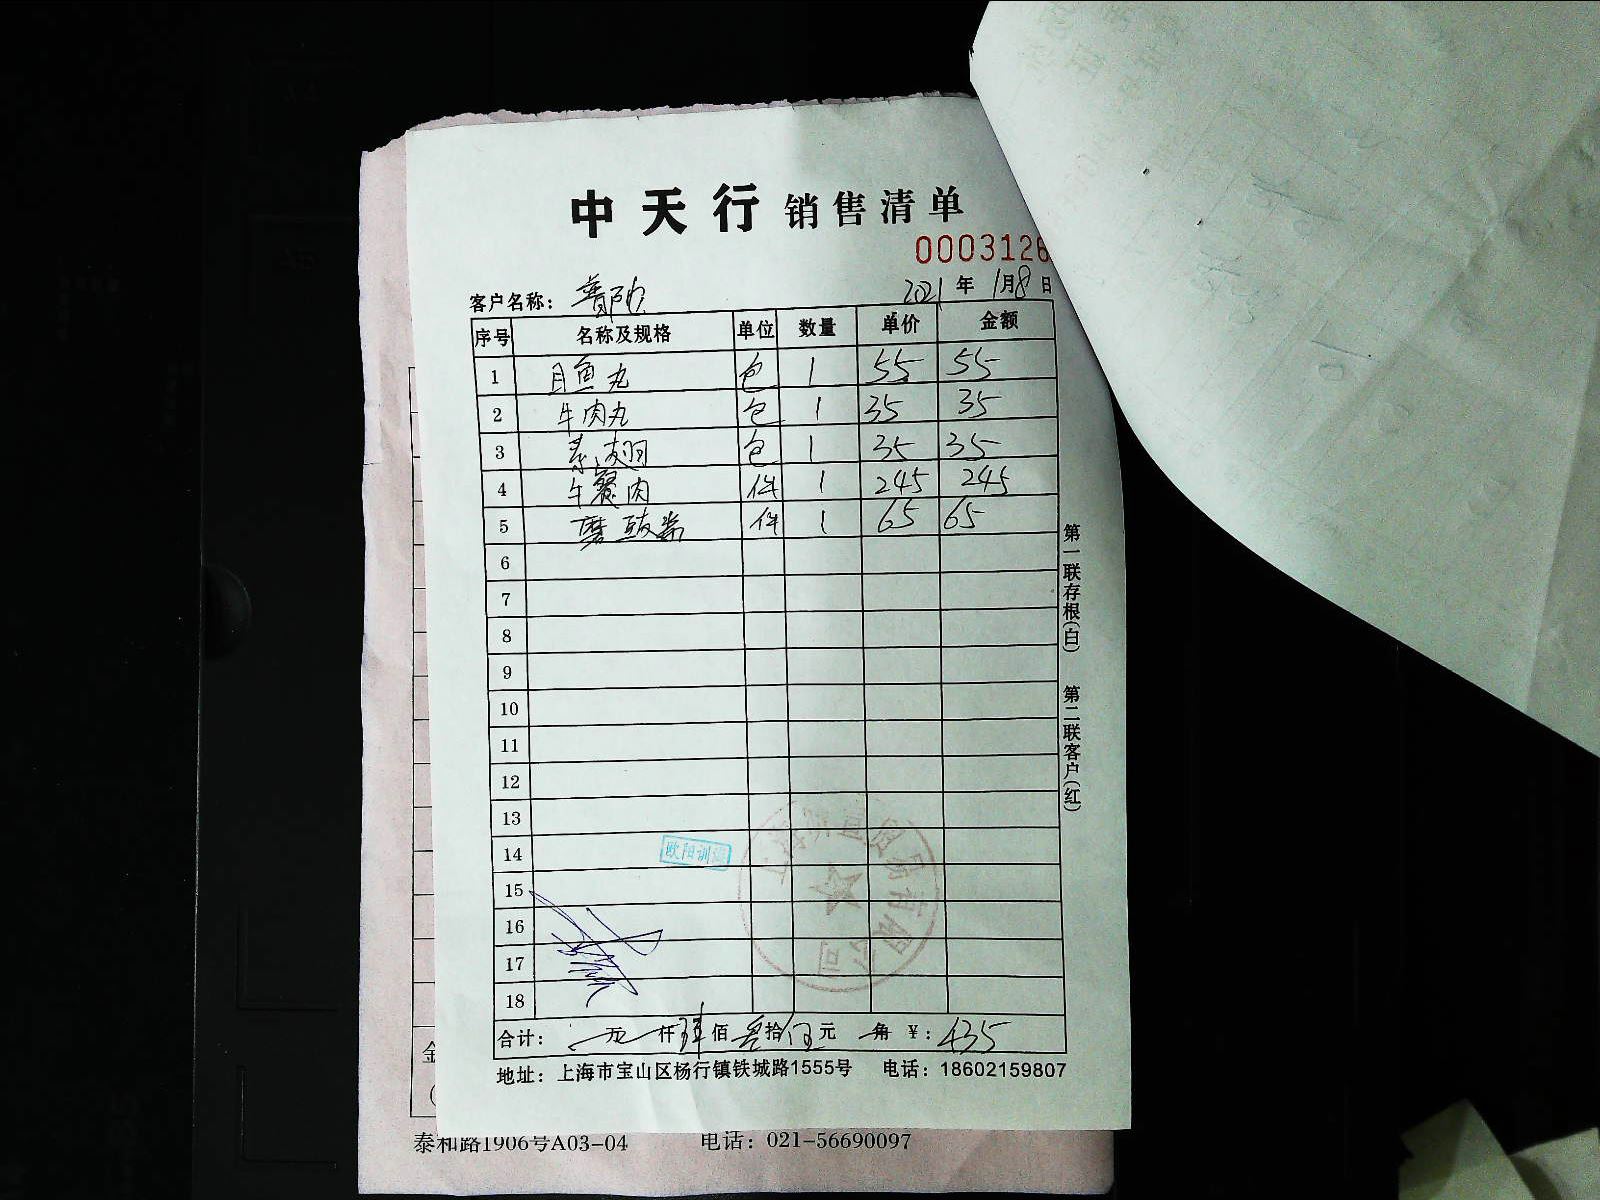 中天行 销售清单
000312
客户名称: 2021年1月8日
序号 名称及规格 单位 数量 单价 金额
1 目鱼丸 包 1 55 55
2 牛肉丸 包 1 35 35
3 素 翅 包 1 35 35
4 午餐肉 件 1 245 245
5 蘑 件 1 65 65
6
7
8
9
10
11
12
13
14
欧阳训
15
16
17
18
合计: 万 仟肆佰叁拾伍元 角 ¥:435
地址:上海市宝山区杨行镇铁城路1555号 电话:18602159807
第一联存根(白) 第二联客户(红)
有限公司
泰和路1906号A03-04 电话:021-56690097